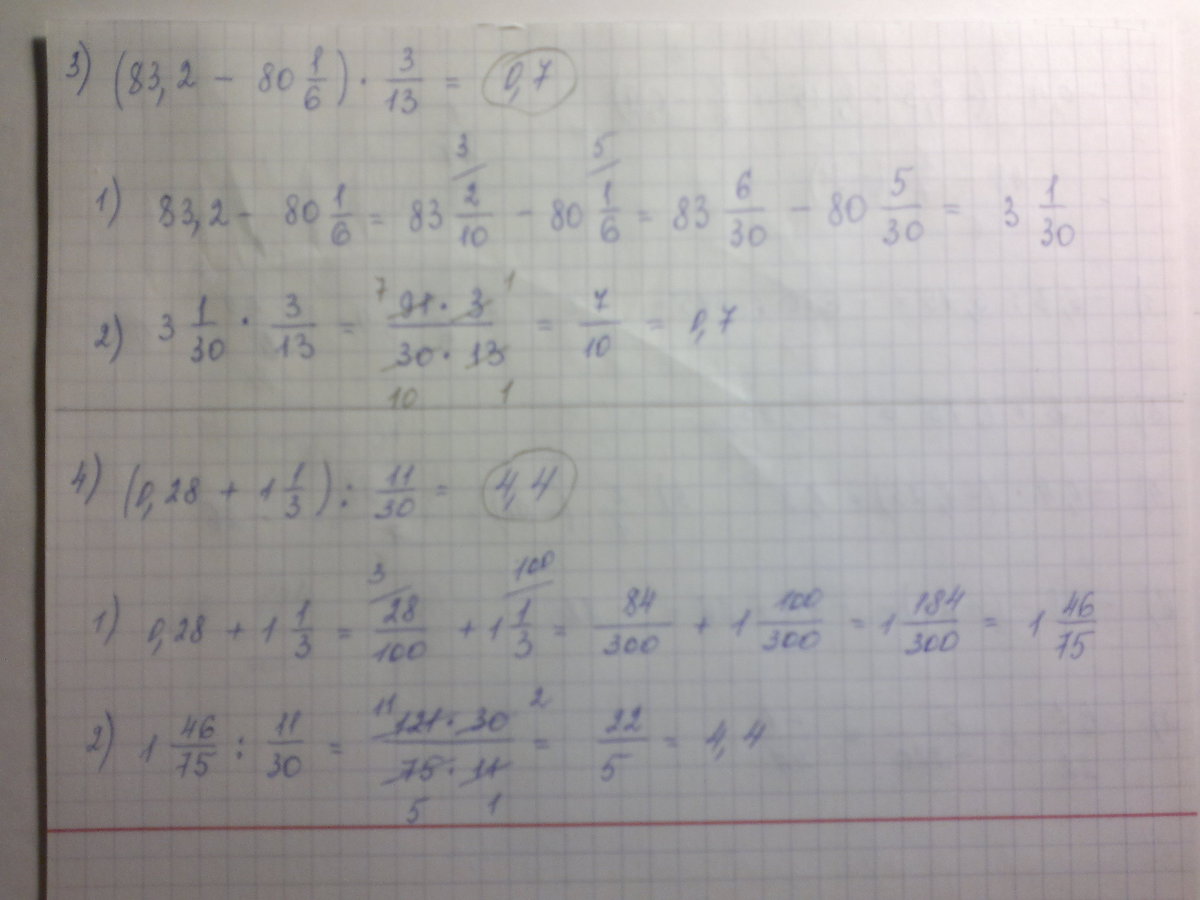 3) (83,2 - 80 1/6) · 3/13 = 0,7
1) 83,2 - 80 1/6 = 83 2/10 (3/) - 80 1/6 (5/) = 83 6/30 - 80 5/30 = 3 1/30
2) 3 1/30 · 3/13 = 7 91 · 3 1 / 30 · 13 10 1 = 7/10 = 0,7
4) (0,28 + 1 1/3) : 11/30 = 4,4
1) 0,28 + 1 1/3 = 28/100 (3/) + 1 1/3 (100/) = 84/300 + 1 100/300 = 1 184/300 = 1 46/75
2) 1 46/75 : 11/30 = 11 121 · 30 2 / 75 · 11 5 1 = 22/5 = 4,4